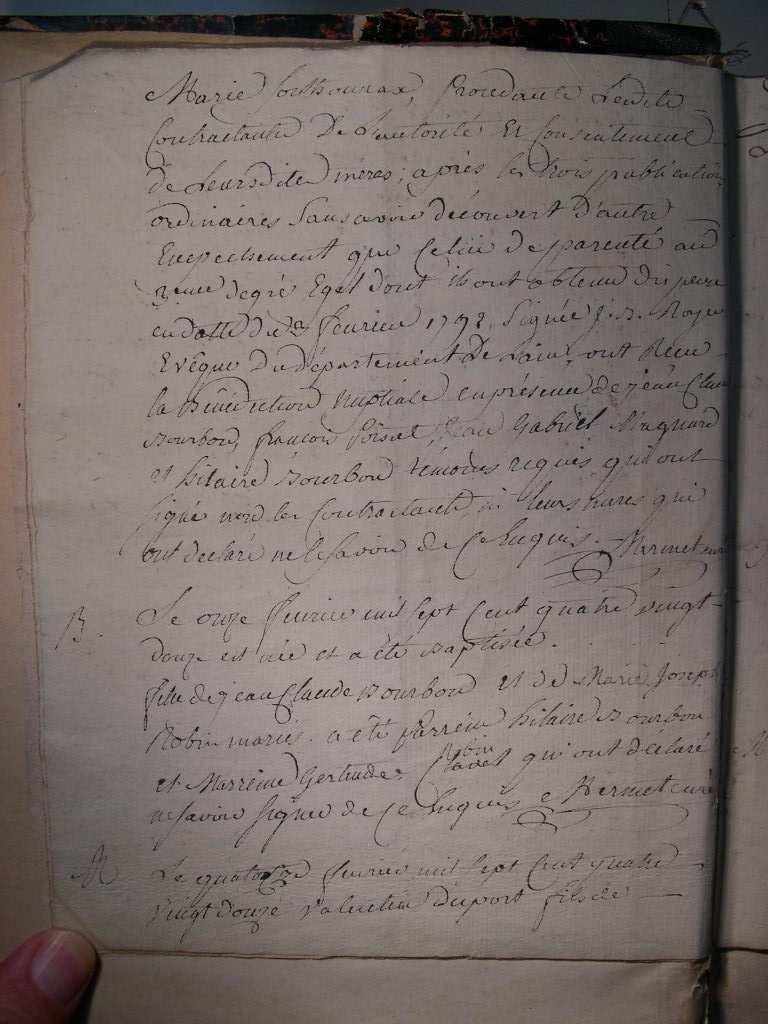 Marie procedants Lesdits
Contractants De L'autorité Et Consentement
de Leursdites mères; après les trois publications
ordinaires sans avoir découvert d'autre
Empechement que Celui de parenté au
degré Egal dont ils ont obtenu dispense
en datte du fevrier 1792. Signée J. B. Royer
Evêque Du département De Lain, ont Recu
la Bénédiction Nuptiale en présence de jean Claude
Bourbon, francois jean Gabriel Magnard
et hilaire Bourbon témoins requis qui ont
signé non les Contractants, ni leurs mères qui
ont declaré ne le savoir de Ce Enquis. Mermet curé
B. Le onze fevrier mil sept Cent quatre vingt
douze est née et a été Baptisée
fille de jean Claude Bourbon et de Marie Joseph
Robin mariés. a été Parrein hilaire Bourbon
et Marreine Gertrude Robin qui ont déclaré
ne savoir signer de Ce Enquis Mermet curé
M Le quatorze fevrier mil sept Cent quatre
vingt douze valentin duport fils de